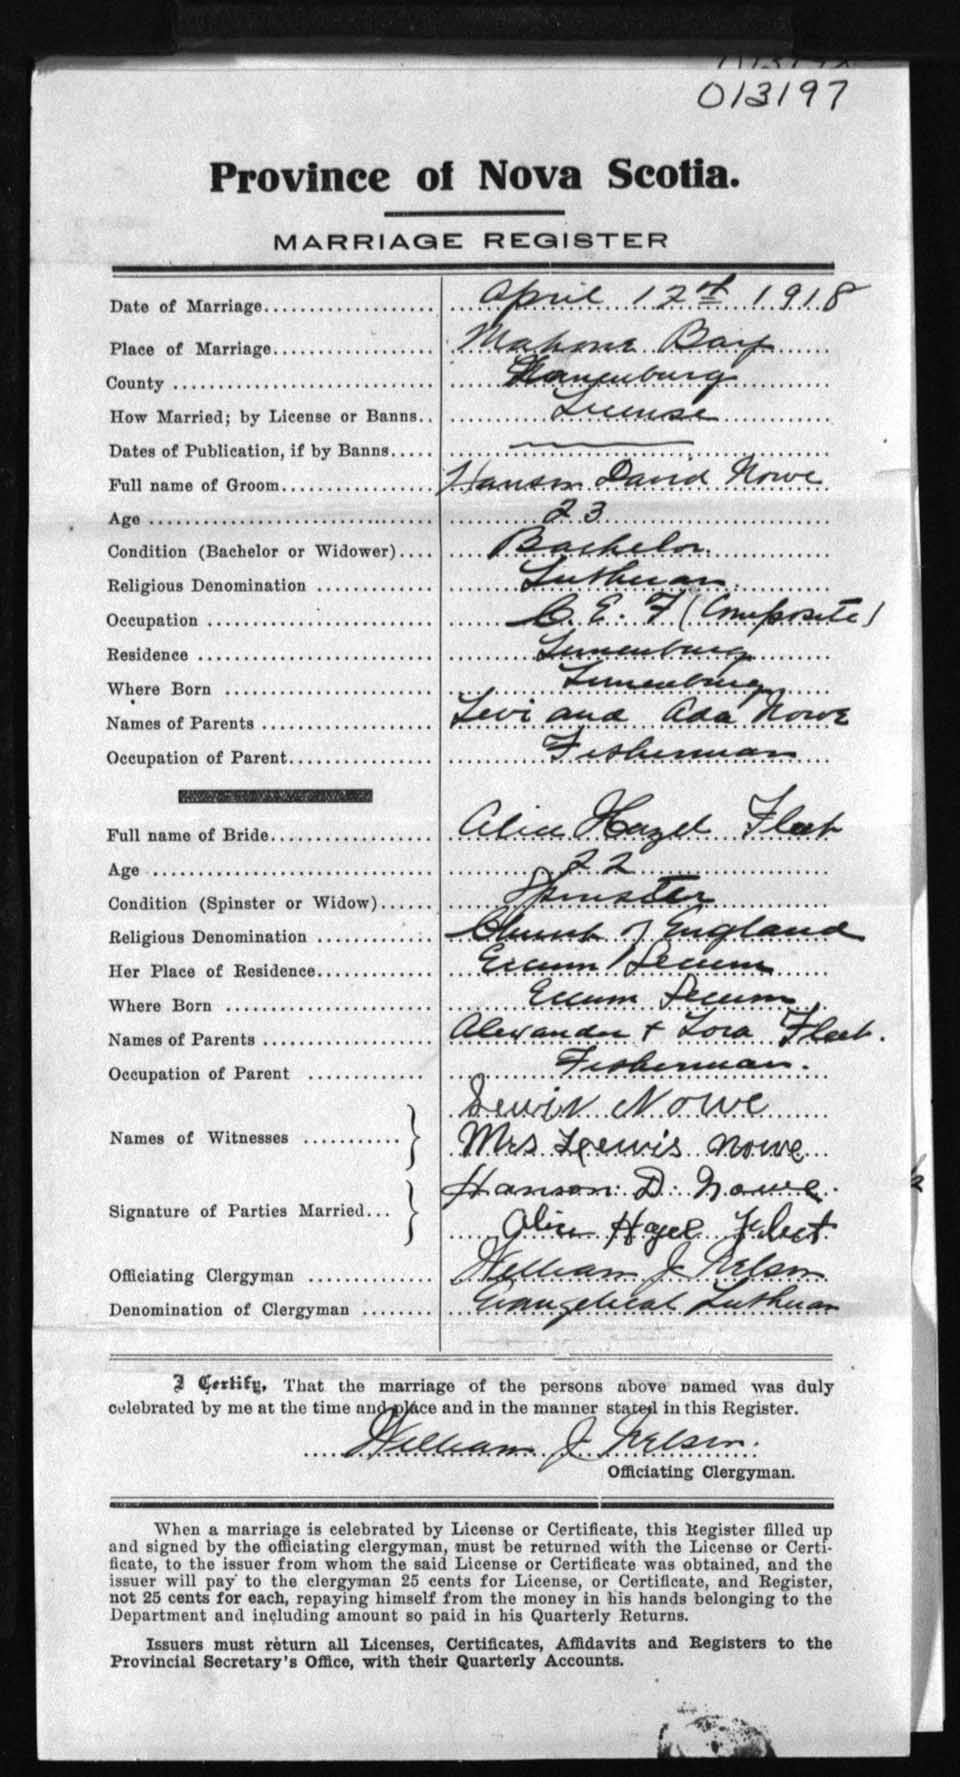 013197
Province of Nova Scotia.
MARRIAGE REGISTER
Date of Marriage.................... April 12th 1918
Place of Marriage................... Mahone Bay
County ............................. Lunenburg
How Married; by License or Banns.. License
Dates of Publication, if by Banns.....
Full name of Groom.................. Hanson David Nowe
Age ................................ 23
Condition (Bachelor or Widower).... Bachelor
Religious Denomination ............. Lutheran
Occupation ......................... C. E. F (Composite)
Residence .......................... Lunenburg
Where Born ......................... Lunenburg
Names of Parents ................... Levi and Ada Nowe
Occupation of Parent................ Fisherman
Full name of Bride.................. Alice Hazel Fleet
Age ................................ 22
Condition (Spinster or Widow)...... Spinster
Religious Denomination ............. Church of England
Her Place of Residence............. Eccum Secum
Where Born ......................... Eccum Secum
Names of Parents ................... Alexander + Lora Fleet.
Occupation of Parent ............. Fisherman.
Lewis Nowe
Names of Witnesses ...........
Mrs Lewis Nowe
Hanson D. Nowe
Signature of Parties Married...
Alice Hazel Fleet
Officiating Clergyman .............. William J Nelson
Denomination of Clergyman ........ Evangelical Lutheran
I Certify, That the marriage of the persons above named was duly
celebrated by me at the time and place and in the manner stated in this Register.
William J Nelson.
Officiating Clergyman.
When a marriage is celebrated by License or Certificate, this Register filled up
and signed by the officiating clergyman, must be returned with the License or Certi-
ficate, to the issuer from whom the said License or Certificate was obtained, and the
issuer will pay to the clergyman 25 cents for License, or Certificate, and Register,
not 25 cents for each, repaying himself from the money in his hands belonging to the
Department and including amount so paid in his Quarterly Returns.
Issuers must return all Licenses, Certificates, Affidavits and Registers to the
Provincial Secretary's Office, with their Quarterly Accounts.